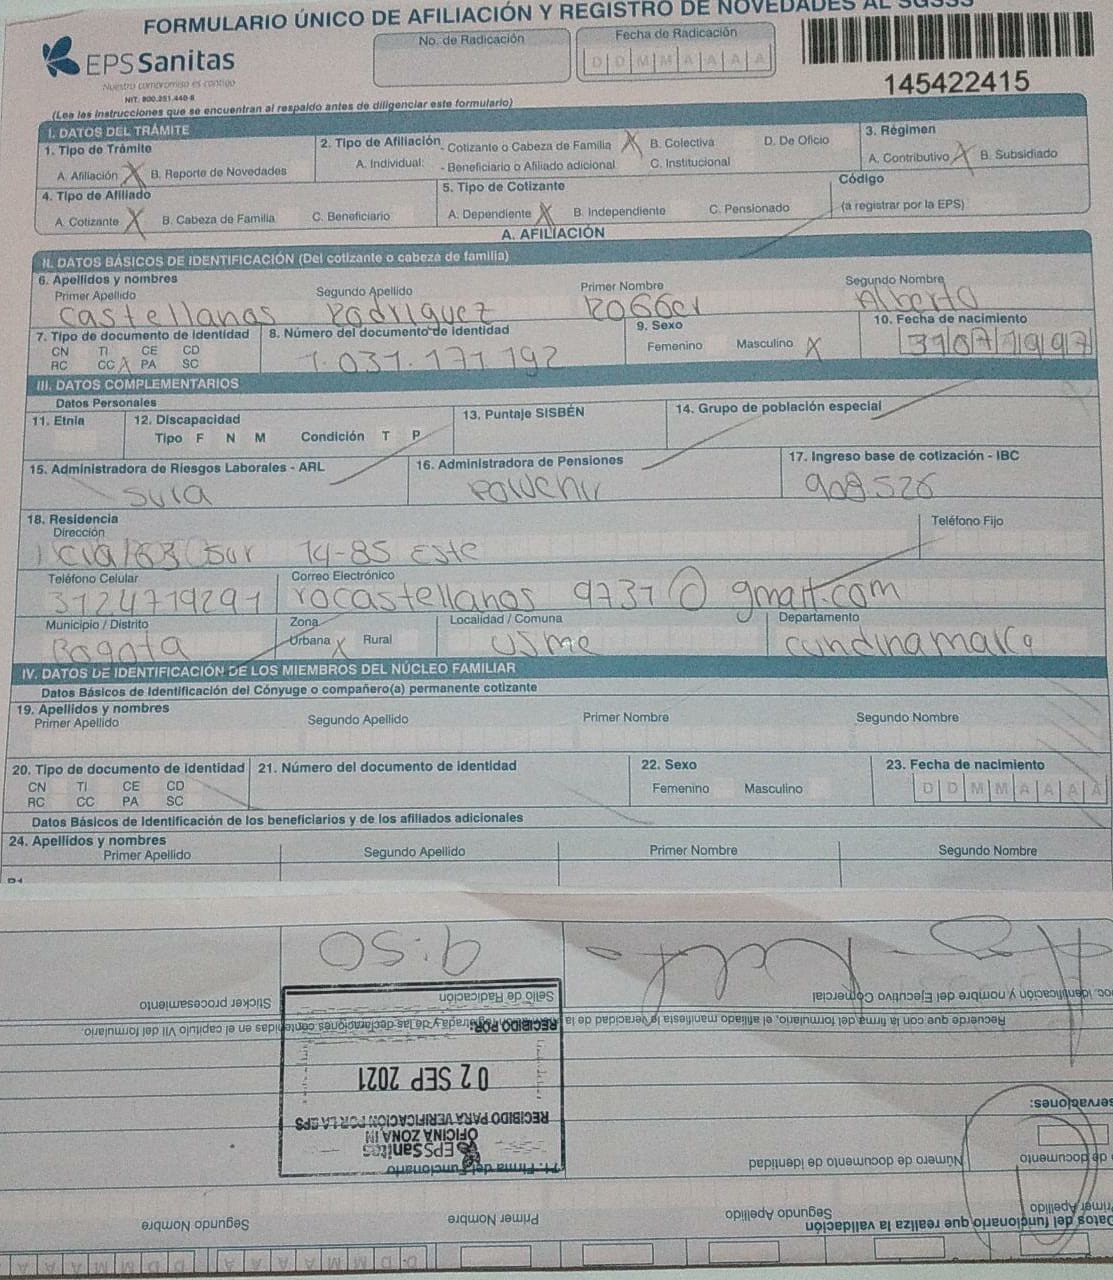 FORMULARIO ÚNICO DE AFILIACIÓN Y REGISTRO DE NOVEDADES AL SGSSS
EPS Sanitas
Nuestro compromiso es contigo
NIT. 800.251.440-6
No. de Radicación
Fecha de Radicación
D D M M A A A A
145422415
(Lea las instrucciones que se encuentran al respaldo antes de diligenciar este formulario)
I. DATOS DEL TRÁMITE
1. Tipo de Trámite
A. Afiliación X B. Reporte de Novedades
2. Tipo de Afiliación
A. Individual: - Cotizante o Cabeza de Familia X
- Beneficiario o Afiliado adicional
B. Colectiva
C. Institucional
D. De Oficio
3. Régimen
A. Contributivo X B. Subsidiado
4. Tipo de Afiliado
A. Cotizante X B. Cabeza de Familia C. Beneficiario
5. Tipo de Cotizante
A. Dependiente X B. Independiente C. Pensionado
Código
(a registrar por la EPS)
A. AFILIACIÓN
II. DATOS BÁSICOS DE IDENTIFICACIÓN (Del cotizante o cabeza de familia)
6. Apellidos y nombres
Primer Apellido Segundo Apellido Primer Nombre Segundo Nombre
Castellanos Rodriguez Rogger Alberto
7. Tipo de documento de identidad
CN TI CE CD
RC CC X PA SC
8. Número del documento de identidad
1.031.171.192
9. Sexo
Femenino Masculino X
10. Fecha de nacimiento
31071997
III. DATOS COMPLEMENTARIOS
Datos Personales
11. Etnia
12. Discapacidad
Tipo F N M Condición T P
13. Puntaje SISBÉN
14. Grupo de población especial
15. Administradora de Riesgos Laborales - ARL
Sura
16. Administradora de Pensiones
Porvenir
17. Ingreso base de cotización - IBC
908.526
18. Residencia
Dirección
Teléfono Fijo
sur 14-85 este
Teléfono Celular
3124719291
Correo Electrónico
rocastellanos 9731@gmail.com
Municipio / Distrito
Bogota
Zona
Urbana X Rural
Localidad / Comuna
Usme
Departamento
Cundinamarca
IV. DATOS DE IDENTIFICACIÓN DE LOS MIEMBROS DEL NÚCLEO FAMILIAR
Datos Básicos de Identificación del Cónyuge o compañero(a) permanente cotizante
19. Apellidos y nombres
Primer Apellido Segundo Apellido Primer Nombre Segundo Nombre
20. Tipo de documento de identidad
CN TI CE CD
RC CC PA SC
21. Número del documento de identidad
22. Sexo
Femenino Masculino
23. Fecha de nacimiento
D D M M A A A A
Datos Básicos de Identificación de los beneficiarios y de los afiliados adicionales
24. Apellidos y nombres
Primer Apellido Segundo Apellido Primer Nombre Segundo Nombre
D D M M A A A A D D M M A A
Datos del funcionario que realiza la validación
Primer Apellido Segundo Apellido Primer Nombre Segundo Nombre
de documento Número de documento de identidad
71. Firma del Funcionario
EPS Sanitas
OFICINA ZONA IN
RECIBIDO PARA VERIFICACIÓN POR LA EPS
02 SEP 2021
RECIBIDO POR:
servaciones:
Recuerde que con la firma del formulario, el afiliado manifiesta la veracidad de la registrada y de las declaraciones contenidas en el capítulo VII del formulario.
oc. identificación y nombre del Ejecutivo Comercial
Sello de Radicación
Sticker procesamiento
9:50